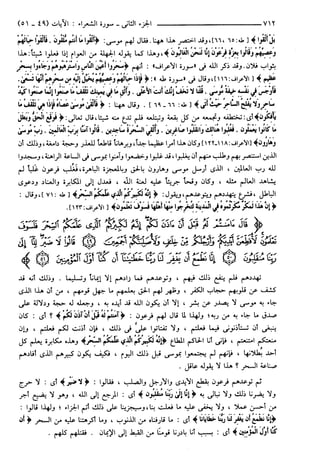 ٧١٢ الجزء الثاني - سورة الشعراء : الآيات (٤٩ - ٥١)
بل ألقوا﴾ [طه: ٦٥، ٦٦]، وقد اختصر هذا ههنا، فقال لهم موسى: ﴿ألقوا ما أنتم ملقون . فألقوا حبالهم
وعصيهم وقالوا بعزة فرعون إنا لنحن الغالبون﴾، وهذا كما يقوله الجهلة من العوام إذا فعلوا شيئاً: هذا
بثواب فلان. وقد ذكر الله في سورة الأعراف: أنهم ﴿سحروا أعين الناس واسترهبوهم وجاءوا بسحر
عظيم﴾ [الأعراف: ١١٦]، وقال في سورة طه: ﴿فإذا حبالهم وعصيهم يخيل إليه من سحرهم أنها تسعى .
فأوجس في نفسه خيفة موسى . قلنا لا تخف إنك أنت الأعلى . وألق ما في يمينك تلقف ما صنعوا إنما صنعوا كيد
ساحر ولا يفلح الساحر حيث أتى﴾ [طه: ٦٦ - ٦٩]. وقال ههنا: ﴿فألقى موسى عصاه فإذا هي تلقف ما
يأفكون﴾ أي: تختطفه وتجمعه من كل بقعة وتبتلعه فلم تدع منه شيئاً، قال تعالى: ﴿فوقع الحق وبطل
ما كانوا يعملون . فغلبوا هنالك وانقلبوا صاغرين . وألقي السحرة ساجدين . قالوا آمنا برب العالمين . رب موسى
وهارون﴾ [الأعراف: ١١٨ - ١٢٢] وكان هذا أمراً عظيماً جداً، وبرهاناً قاطعاً للعذر وحجة دامغة، وذلك أن
الذين استنصر بهم وطلب منهم أن يغلبوا، قد غلبوا وخضعوا وآمنوا بموسى في الساعة الراهنة، وسجدوا
لله رب العالمين ، الذي أرسل موسى وهارون بالحق وبالمعجزة الباهرة، فغلب فرعون غلباً لم
يشاهد العالم مثله ، وكان وقحاً جريئاً عليه لعنة الله ، فعدل إلى المكابرة والعناد ودعوى
الباطل، فشرع يتهددهم ويتوعدهم، ويقول: ﴿إنه لكبيركم الذي علمكم السحر﴾ [طه: ٧١]، وقال:
﴿إن هذا لمكر مكرتموه في المدينة لتخرجوا منها أهلها فسوف تعلمون﴾ [الأعراف: ١٢٣].
تهددهم فلم ينفع ذلك فيهم ، وتوعدهم فما زادهم إلا إيماناً وتسليماً . وذلك أنه قد
كشف عن قلوبهم حجاب الكفر ، وظهر لهم الحق بعلمهم ما جهل قومهم ، من أن هذا الذي
جاء به موسى لا يصدر عن بشر ، إلا أن يكون الله قد أيده به ، وجعله له حجة ودلالة على
صدق ما جاء به من ربه؛ ولهذا لما قال لهم فرعون : ﴿آمنتم له قبل أن آذن لكم﴾ ؟ أي : كان
ينبغي أن تستأذنوني فيما فعلتم ، ولا تفتاتوا علي في ذلك ، فإن أذنت لكم فعلتم ، وإن
منعتكم امتنعتم ، فإني أنا الحاكم المطاع ﴿إنه لكبيركم الذي علمكم السحر﴾ وهذه مكابرة يعلم كل
أحد بطلانها ، فإنهم لم يجتمعوا بموسى قبل ذلك اليوم ، فكيف يكون كبيرهم الذي أفادهم
صناعة السحر ؟ هذا لا يقوله عاقل .
ثم توعدهم فرعون بقطع الأيدي والأرجل والصلب ، فقالوا : ﴿لا ضير﴾ أي : لا حرج
ولا يضرنا ذلك ولا نبالي به ﴿إنا إلى ربنا منقلبون﴾ أي : المرجع إلى الله ، وهو لا يضيع أجر
من أحسن عملاً ، ولا يخفى عليه ما فعلت بنا، وسيجزينا على ذلك أتم الجزاء ؛ ولهذا قالوا :
﴿إنا نطمع أن يغفر لنا ربنا خطايانا﴾ أي : ما قارفناه من الذنوب ، وما أكرهتنا عليه من السحر ﴿أن
كنا أول المؤمنين﴾ أي : بسبب أنا بادرنا قومنا من القبط إلى الإيمان . فقتلهم كلهم .